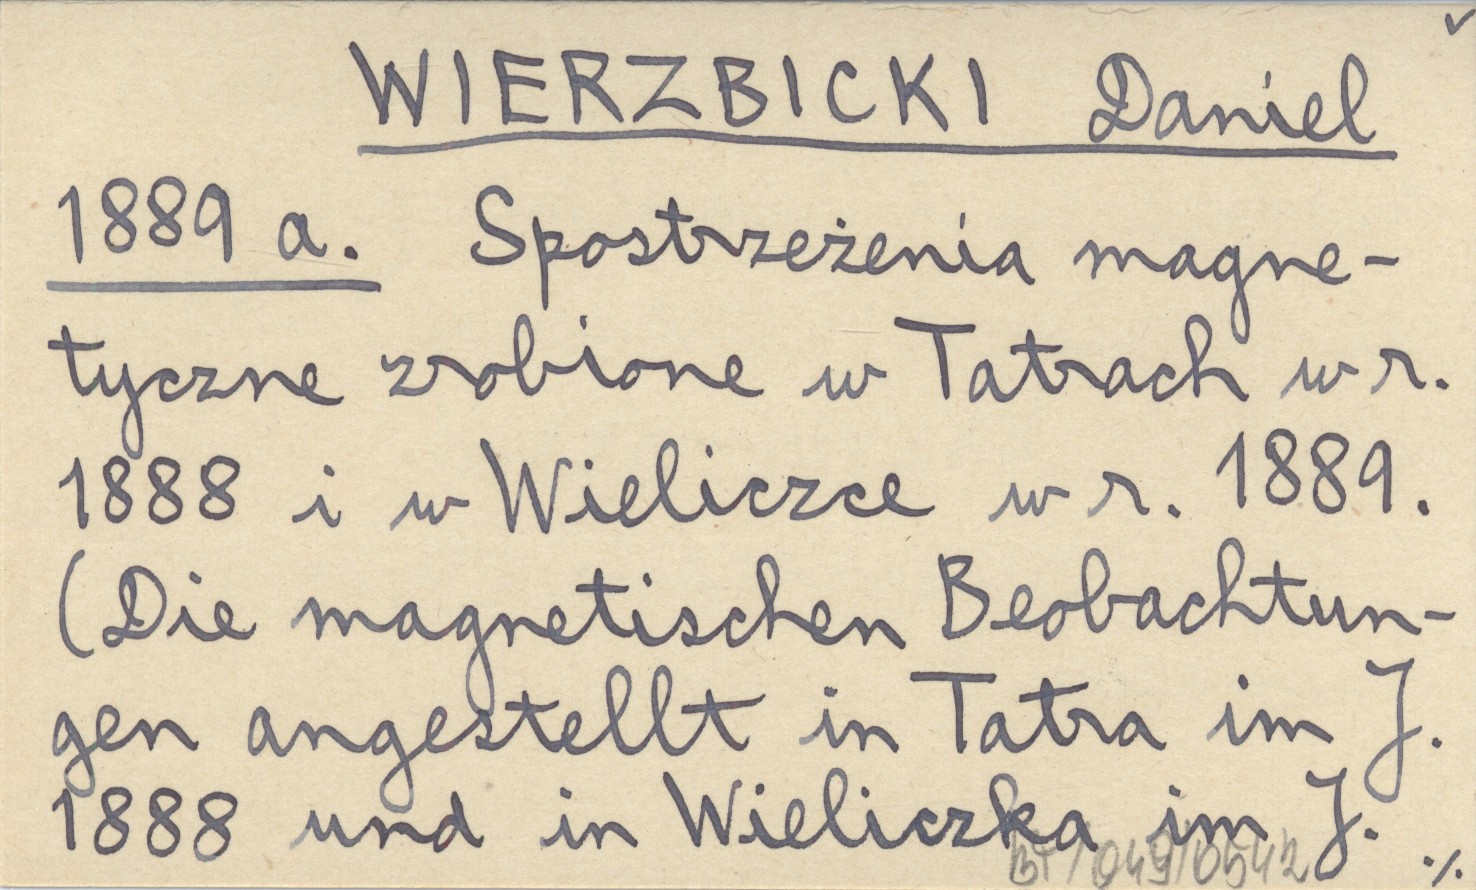 WIERZBICKI Daniel
1889 a. Spostrzeżenia magne-
tyczne zrobione w Tatrach w r.
1888 i w Wieliczce w r. 1889.
(Die magnetischen Beobachtun-
gen angestellt in Tatra im J.
1888 und in Wieliczka im J.
BT/049/0542
./.